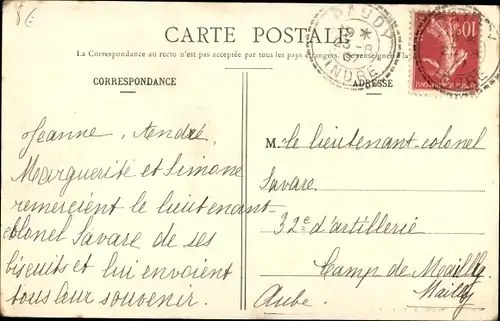 8€
CARTE POSTALE
La Correspondance au recto n'est pas acceptée par tous les pays étrangers.
CORRESPONDANCE
ADRESSE
PAUDY
INDRE
10
INDRE
Jeanne, André,
Marguerite et Simone
remercient le lieutenant-
colonel Savare de ses
biscuits et lui envoient
tous leur souvenir.
M. le lieutenant-colonel
Savare
32e d'artillerie
Camp de Mailly
Mailly
Aube.